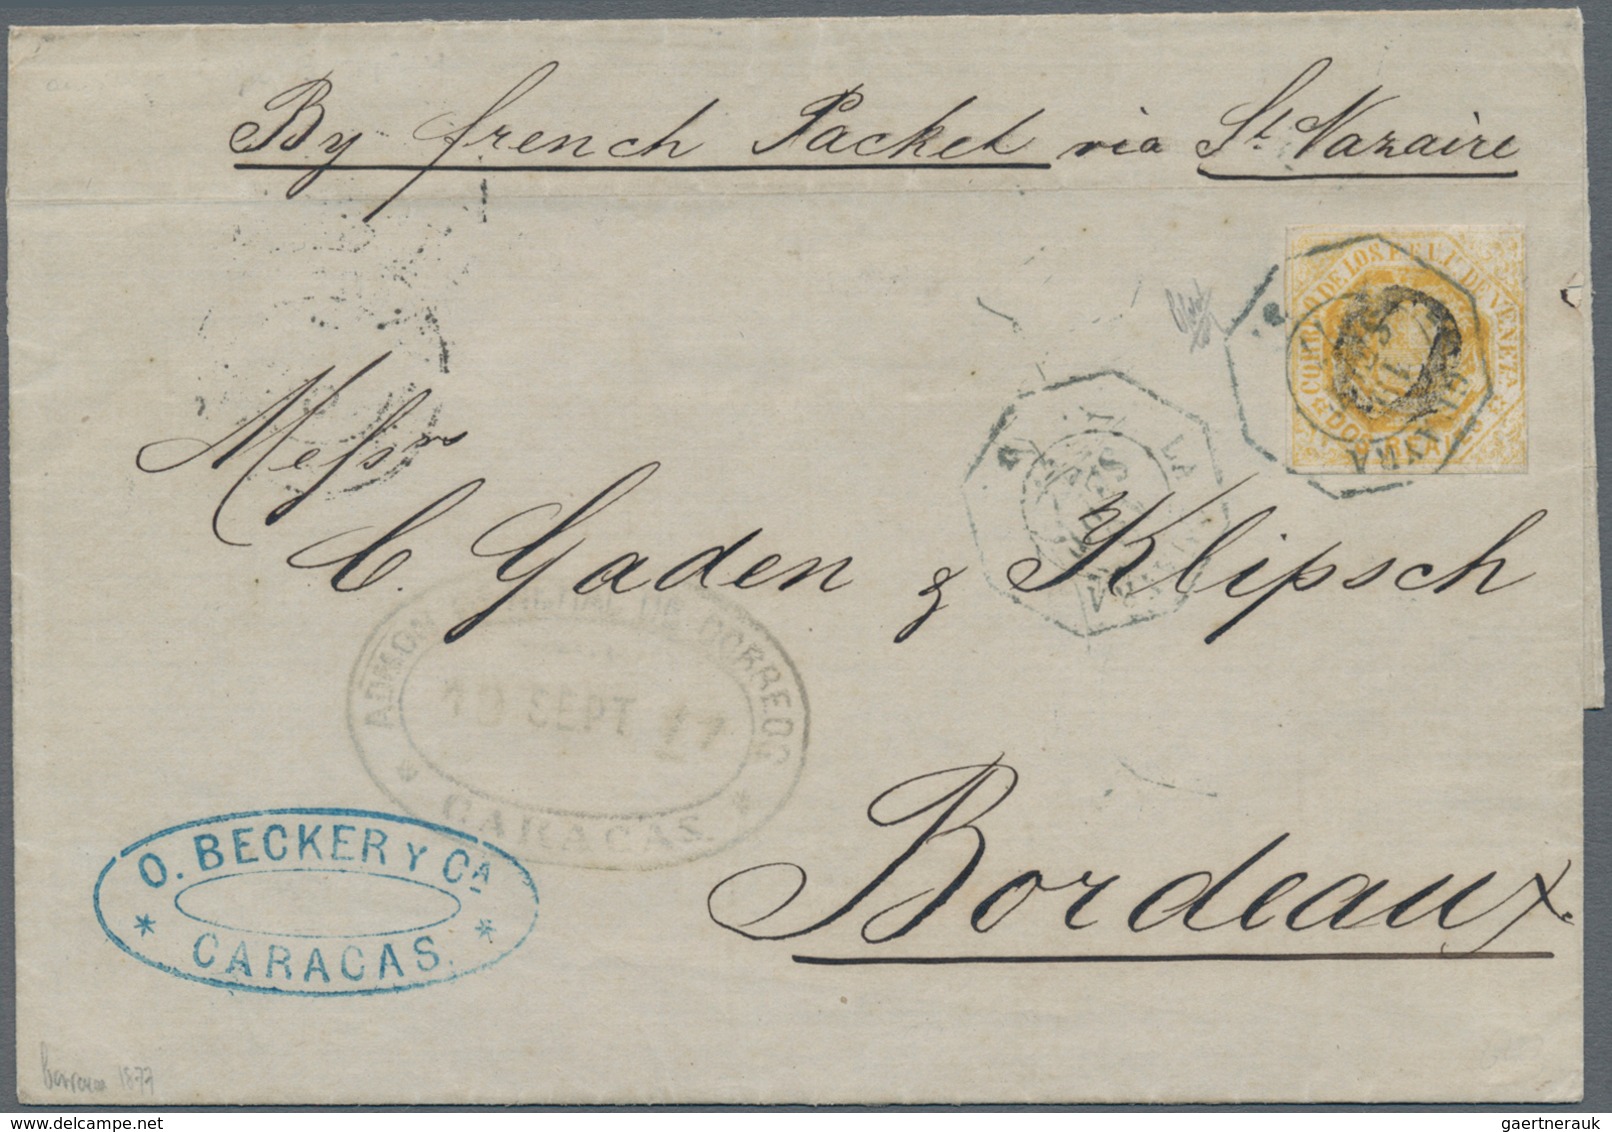 By french Packet via St Nazaire
CORREO DE LOS E.E.U.U. DE VENEZA
DOS REALES
LA GUAYRA
LA
Messrs
C. Gaden & Klipsch
ADMON DE CORREOS
SEPT 77
CARACAS.
Bordeaux.
O. BECKER Y CA
CARACAS.
1877
gaertnerauk